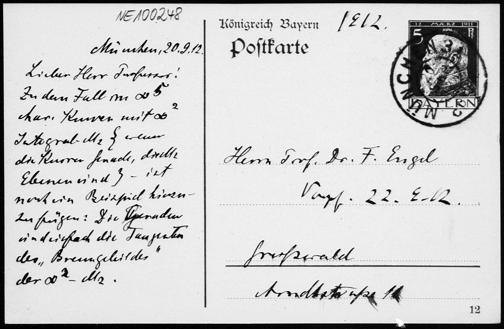 NE100248
Königreich Bayern
Postkarte
1912.
17 MÄRZ 1911
5
BAYERN
MÜNCHEN
München, 20.9.12.
Lieber Herr Professor!
Zu dem Fall von ∞⁵
char. Kurven mit ∞²
Integral-M₂ { wenn
die Kurven Gerade, die M₂
Ebenen sind } – ist
noch ein Beispiel hinzu-
zufügen: Die Geraden
sind einfach die Tangenten
des „Brenngebildes"
der ∞² – M₂.
Herrn Prof. Dr. F. Engel
Greifswald
Arndtstraße 11
12